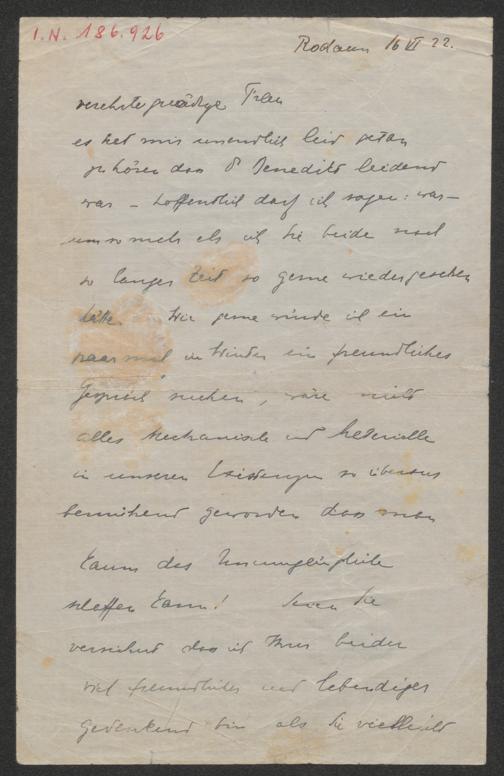 I.N. 186.926
Rodaun 16 VI 22.
verehrte gnädige Frau
es hat mir unendlich leid getan
zu hören dass Dr Benedikt leidend
war – hoffentlich darf ich sagen: war –
umsomehr als ich Sie beide nach
so langer Zeit so gerne wiedergesehen
hätte. Wie gerne würde ich ein
paar mal im Winter ein freundliches
Gespräch suchen, wäre nicht
alles Mechanische und Materielle
in unseren so überaus
bemühend geworden dass man
kaum das Unumgängliche
schaffen kann! Seien Sie
versichert dass ich Ihrer beider
viel freundlicher und lebendiger
gedenkend bin als Sie vielleicht